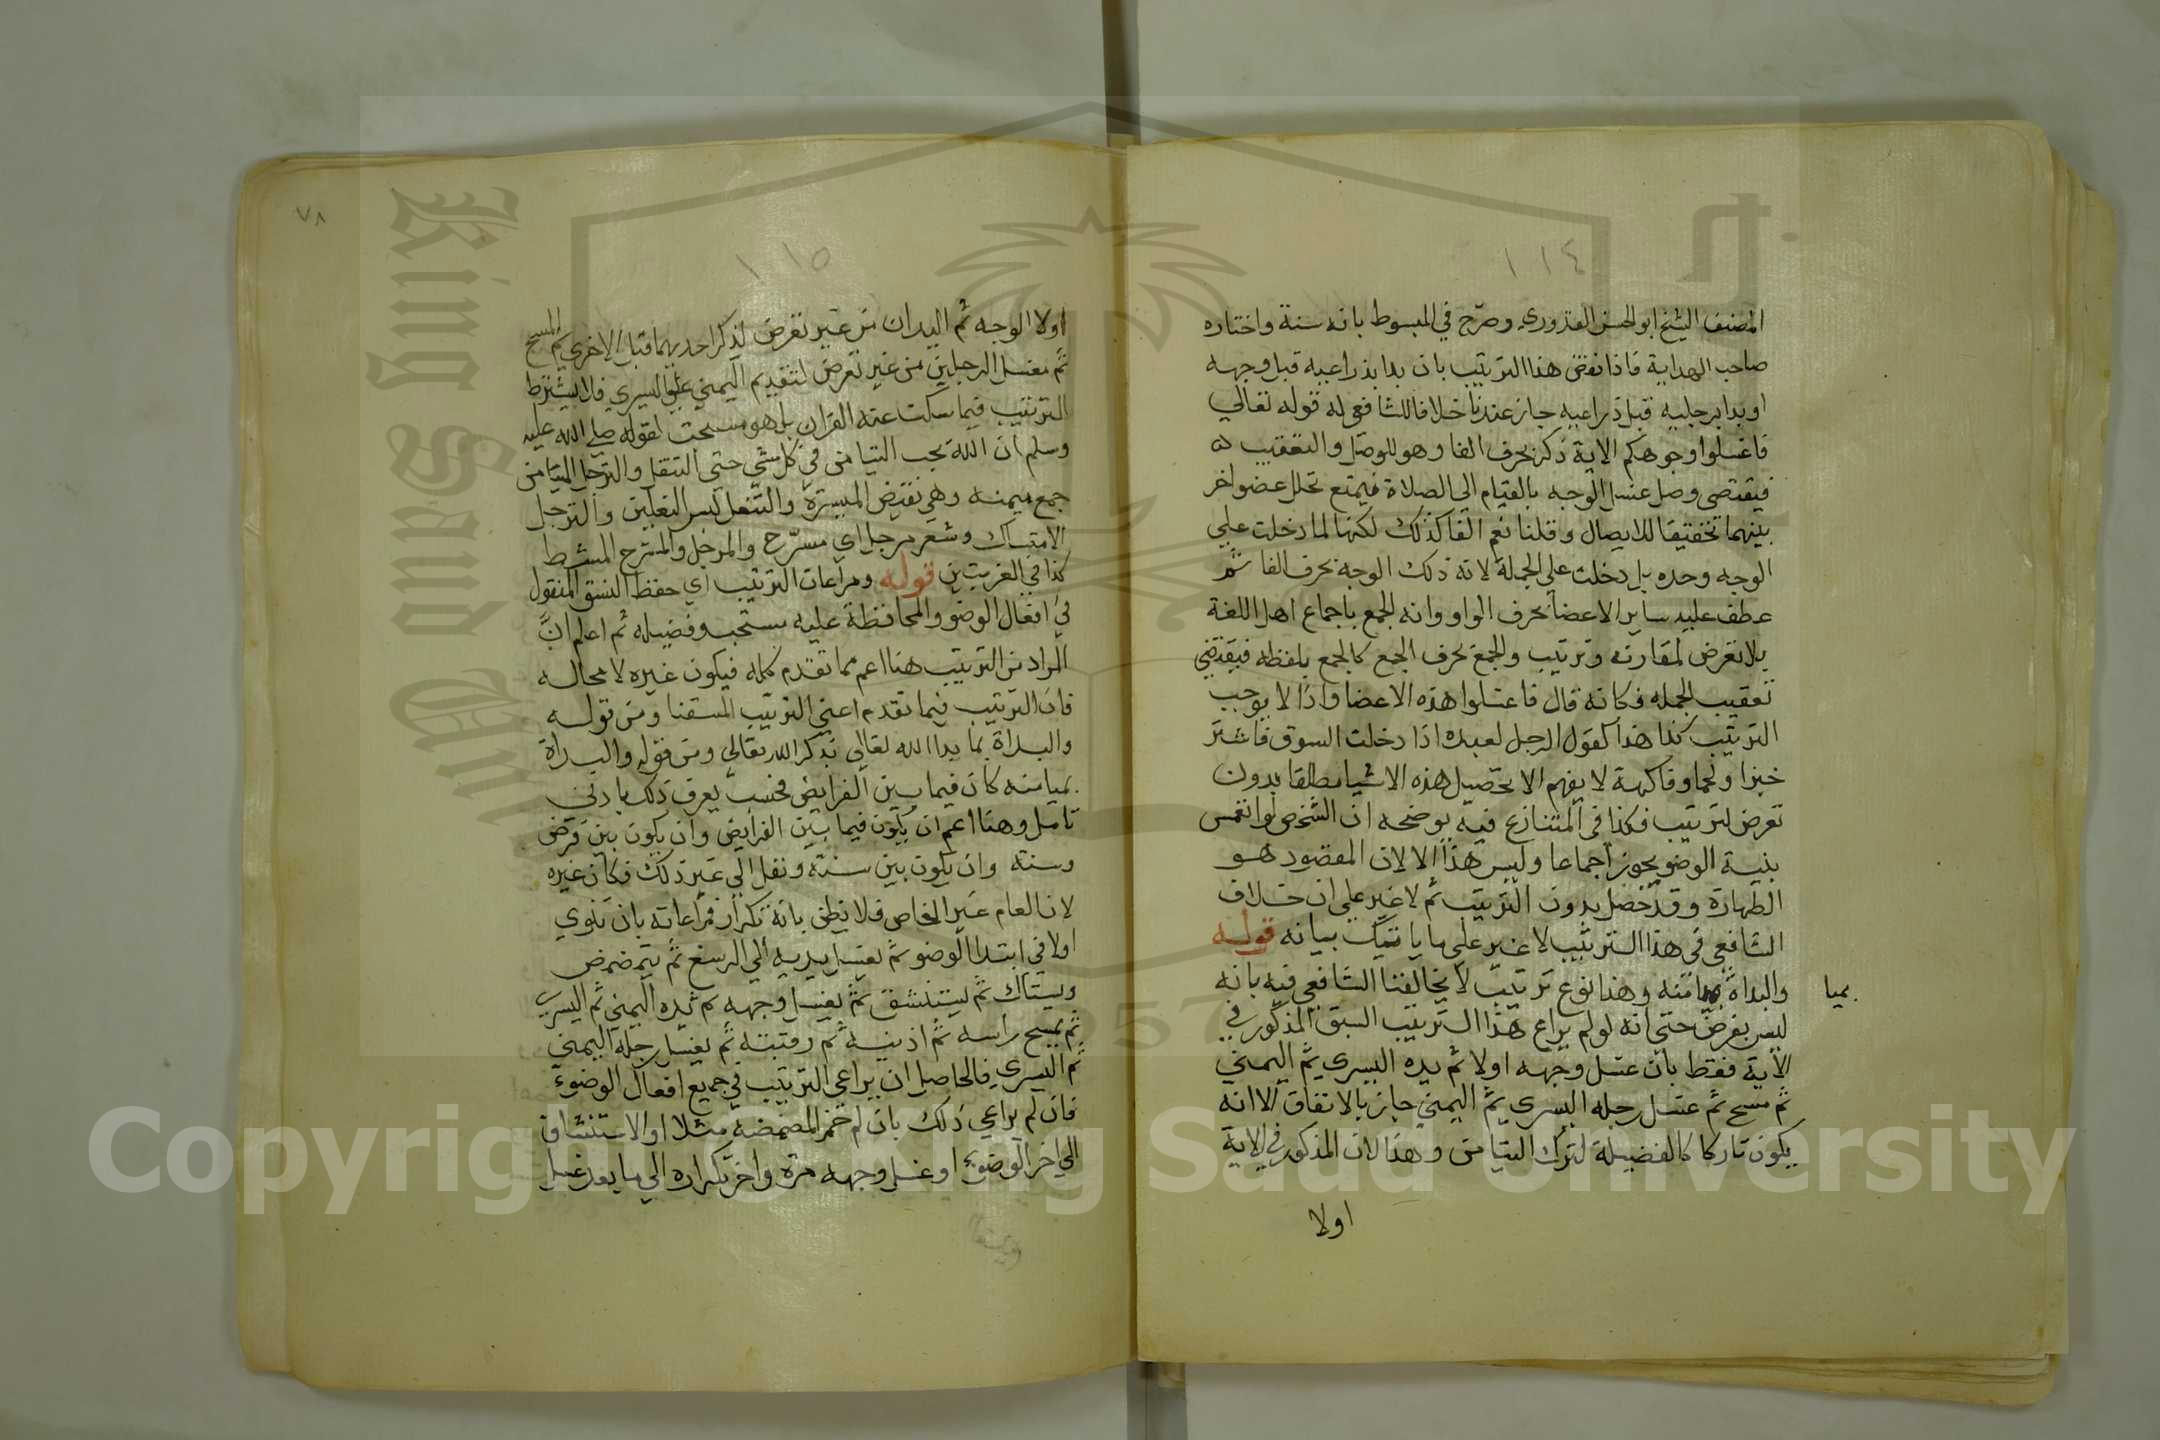 ١١٤
المصنف الشيخ ابو الحسن القدوري وصرح في المبسوط بانه سنة واختاره
صاحب الهداية فاذا نقض هذا الترتيب بان بدا بذراعيه قبل وجهه
او بدا برجليه قبل ذراعيه جاز عندنا خلافا للشافعي له قوله تعالي
فاغسلوا وجوهكم الاية ذكر بحرف الفا وهو للوصل والتعقيب
فيقتضي وصل غسل الوجه بالقيام الي الصلاة فيمتع تخلل عضو اخر
بينهما تحقيقا للايصال وقلنا نعم الفا كذلك لكنها لما دخلت علي
الوجه وحده بل دخلت علي الجملة لانه ذلك الوجه بحرف الفا ثم
عطف عليه ساير الاعضا بحرف الواو وانه للجمع باجماع اهل اللغة
بلا تعرض لمقارنه وترتيب والجمع بحرف الجمع كالجمع بلفظه فيقتضي
تعقيب الجمله فكانه قال فاغسلوا هذه الاعضا واذا لا يوجب
الترتيب كذا هذا كقول الرجل لعبده اذا دخلت السوق فاشتر
خبزا ولحما وفاكهة لا يفهم الا تحصيل هذه الاشيا مطلقا بدون
تعرض لترتيب فكذا في المتنازع فيه يوضحه ان الشخص لو انغمس
بنية الوضو يجوز اجماعا وليس هذا الا لان المقصود هو
الطهارة وقد حصل بدون الترتيب ثم لا غير علي ان خلاف
الشافعي في هذا الترتيب لا غير علي ما ياتيك بيانه قوله
والبداة بميامنه وهذا نوع ترتيب لا يخالفنا الشافعي فيه بانه
بميا
ليس بفرض حتي انه لو لم يراع هذا الترتيب السبق المذكور في
الاية فقط بان غسل وجهه اولا ثم يده اليسري ثم اليمني
ثم مسح ثم غسل رجله اليسري ثم اليمني جاز بالاتفاق الا انه
يكون تاركا كالفضيلة لترك التيامن وهذا لان المذكور في الاية
اولا
٧٨
١١٥
اولا الوجه ثم اليدان من غير تعرض لذكر احديهما قبل الاخري ثم المسح
ثم مغسل الرجلين من غير تعرض لتقديم اليمني علي اليسري فلا يشترط
الترتيب فيما سكت عنه القران بل هو مستحب لقوله صلي الله عليه
وسلم ان الله يحب التيامن في كل شي حتي التنعل والترجل الميامن
جمع ميمنه وهي نقيض الميسرة والتنعل لبس النعلين والترجل
الامتساك وشعر مرجل اي مسرح والمرجل والمسرح المشط
كذا في الغريبين قوله ومراعات الترتيب اي حفظ النسق المنقول
في افعال الوضو والمحافظة عليه مستحب وفضيله ثم اعلم ان
المراد من الترتيب هنا اعم مما تقدم كله فيكون غيره لا محاله
فان الترتيب فيما تقدم اعني الترتيب المستفنا ومن قوله
والبداة بما بدا الله تعالي بذكر الله تعالي ومن قوله والبداة
بميامنه كان فيما بين الفرايض فحسب يعرف ذلك بادني
تامل وهنا اعم ان يكون فيما بين الفرايض وان يكون بين فرض
وسنته وان يكون بين سنته ونفل الي غير ذلك فكان غيره
لان العام غير الخاص فلا تظن بانه تكرار فمراعاته بان ينوي
اولا في ابتدا الوضو ثم يغسل يديه الي الرسغ ثم يتمضمض
ويستاك ثم يستنشق ثم يغسل وجهه ثم يده اليمني ثم اليسري
ثم يمسح راسه ثم اذنيه ثم رقبته ثم يغسل رجله اليمني
ثم اليسري فالحاصل ان يراعي الترتيب في جميع افعال الوضوء
فان لم يراعي ذلك بان لم المضمضه مثلا او الاستنشاق
الي اخر الوضوء او غسل وجهه مرة واخر تكراره الي ما بعد غسل
King Saud University
1957
Copyright © King Saud University